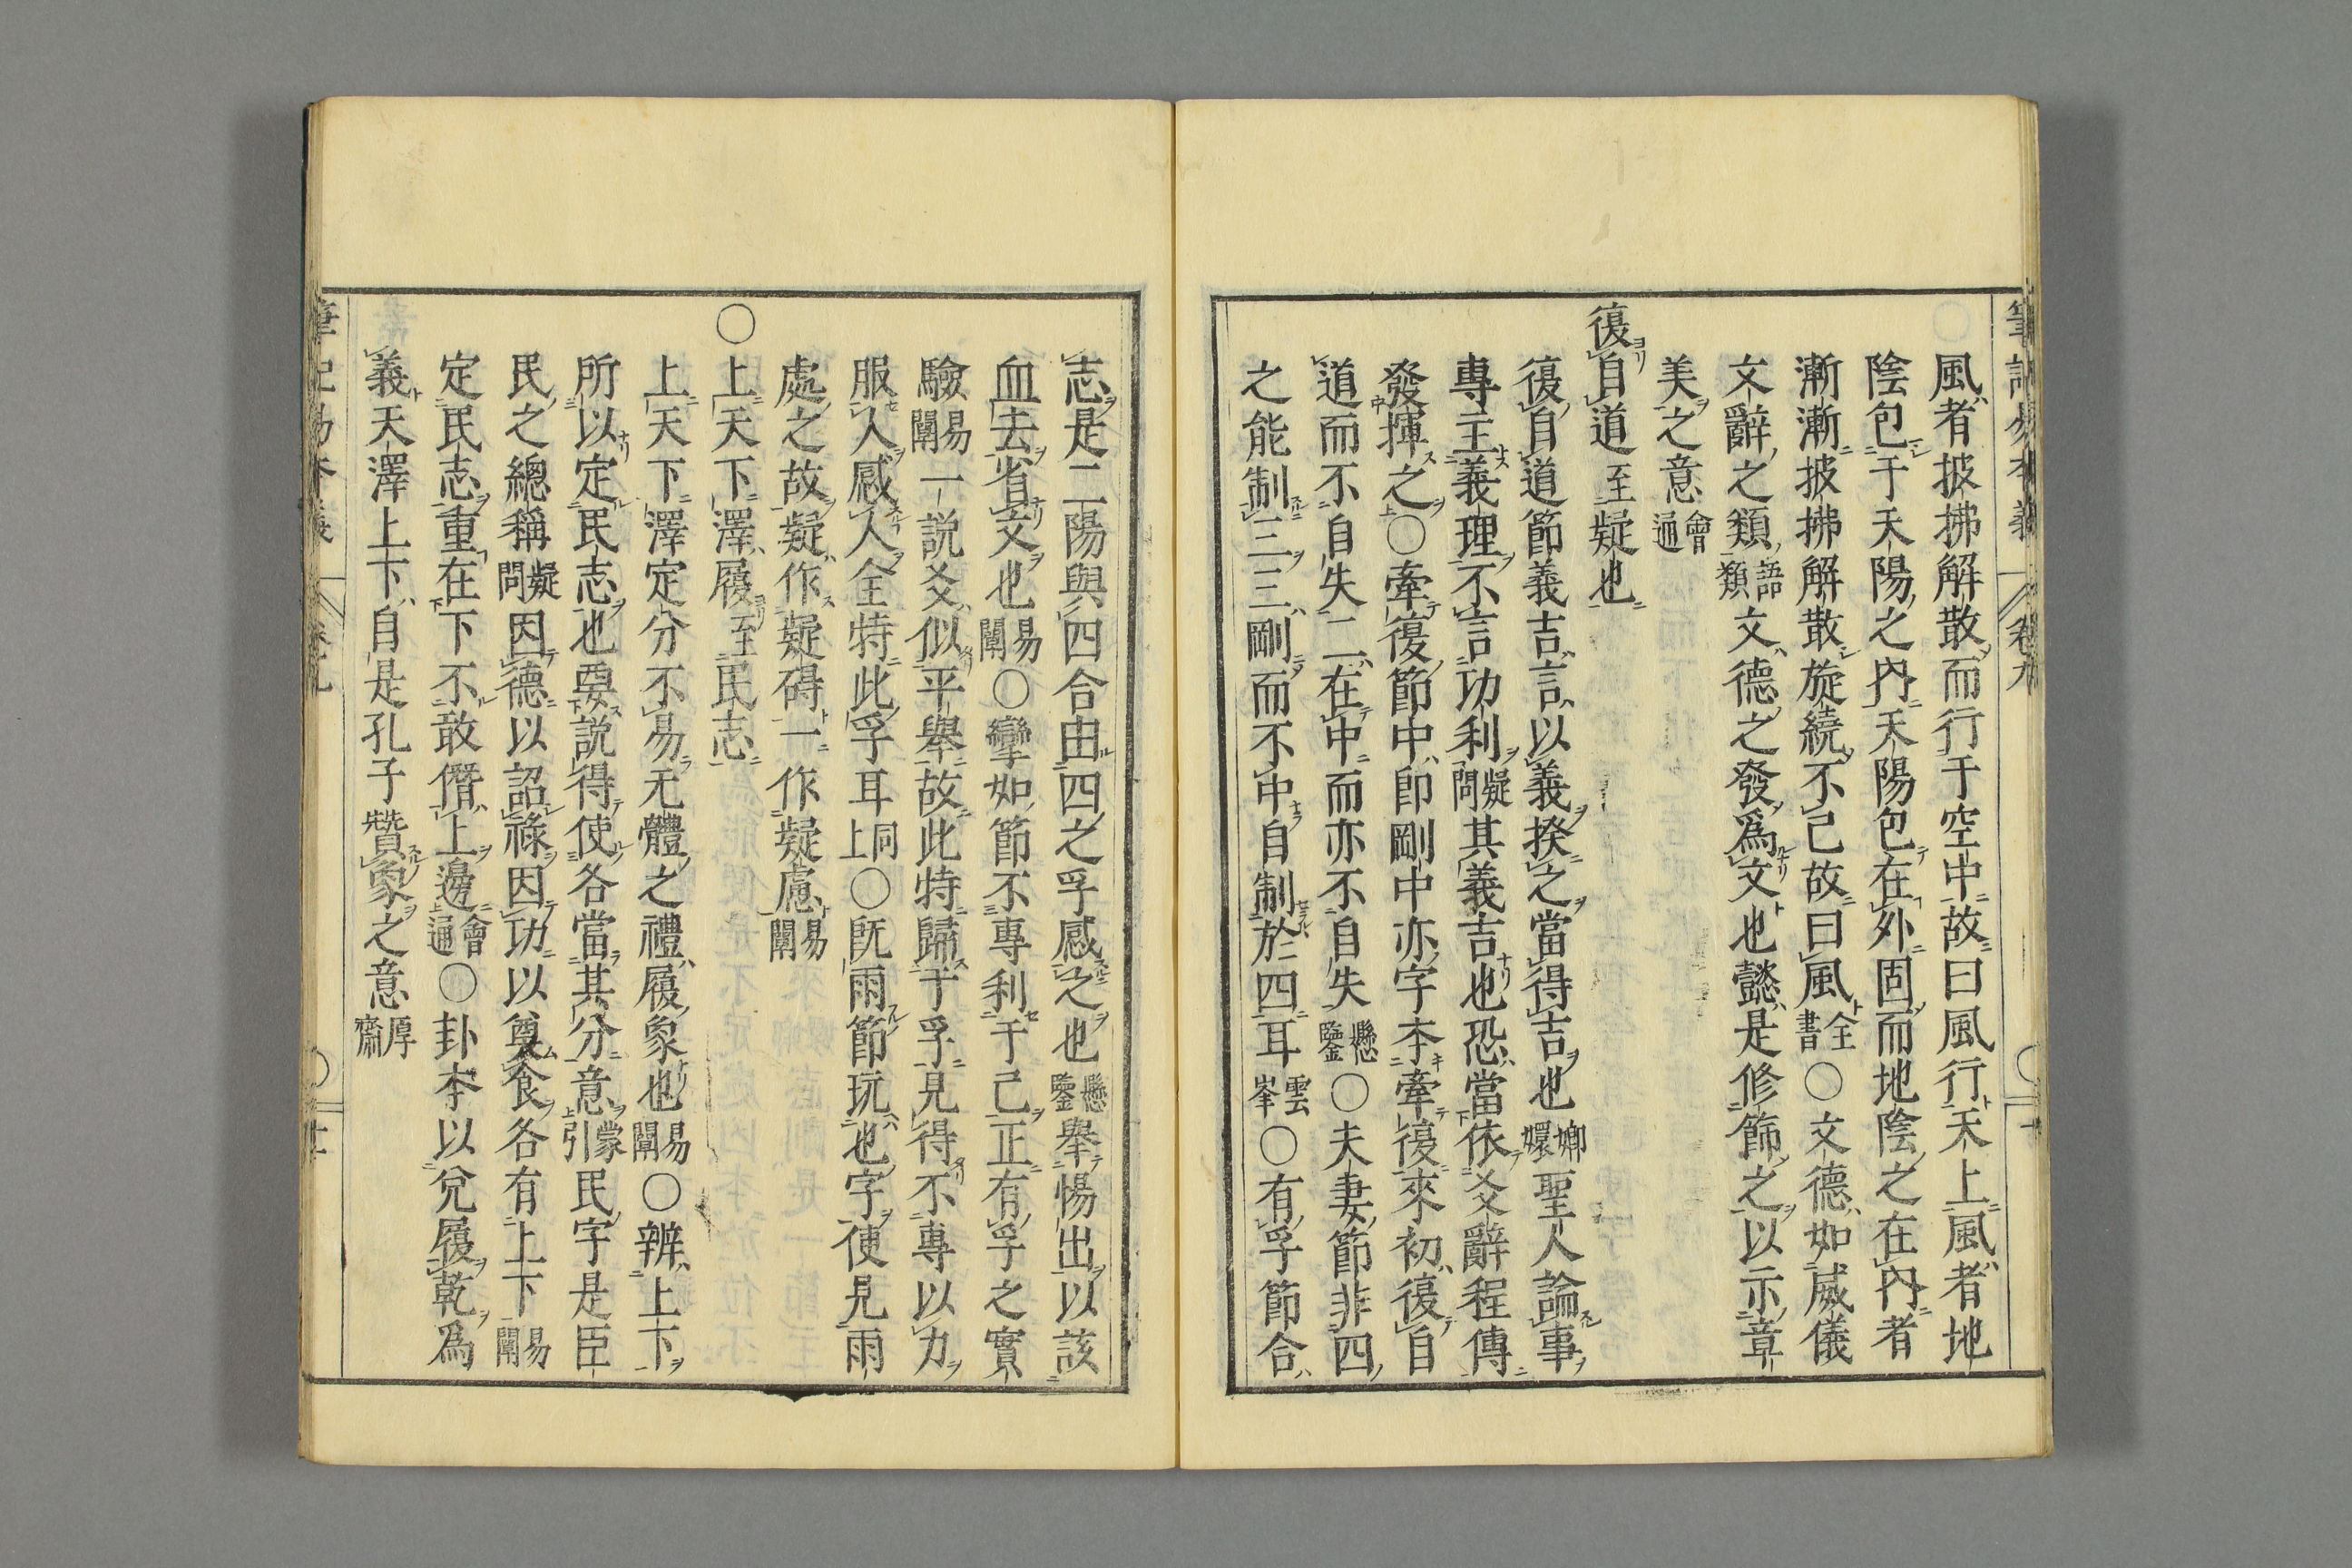 風者披拂解散而行于空中故曰風行天上風者地
陰包于天陽之內天陽包在外固而地陰之在內者
漸漸披拂解散旋繞不已故曰風全書〇文德如威儀
文辭之類語類文德之發爲文也懿是修飾之以示章
美之意會通
復自道至疑也
復自道節義吉言以義揆之當得吉也嫏嬛聖人論事
專主義理不言功利疑問其義吉也恐當依爻辭程傳
發揮之〇牽復節中卽剛中亦字本牽復來初復自
道而不自失二在中而亦不自失懸鑒〇夫妻節非四
之能制三三剛而不中自制於四耳雲峯〇有孚節合
志是二陽與四合由四之孚感之也懸鑒舉惕出以該
血去省文也易闡〇攣如節不專利于己正有孚之實
驗易闡一說爻似平舉故此特歸于孚見得不專以力
服人感人全特此孚耳同上〇旣雨節玩也字使見雨
處之故疑作疑碍一作疑慮易闡
〇上天下澤履至民志
上天下澤定分不易无體之禮履象也易闡〇辨上下
所以定民志也要說得使各當其分意蒙引民字是臣
民之總稱疑問因德以詔祿因功以奠食各有上下易闡
定民志重在下不敢僭上邊會通〇卦本以兌履乾爲
義天澤上下自是孔子贊象之意厚齋